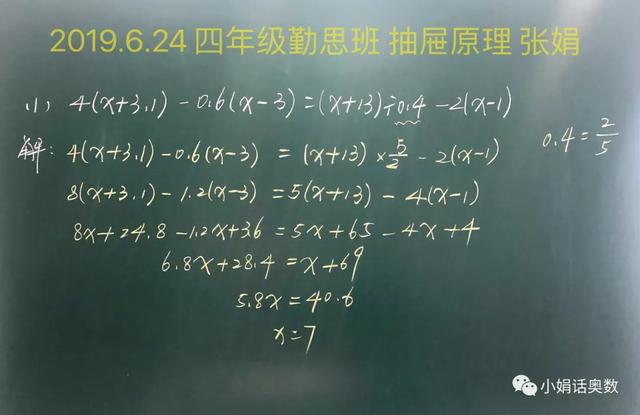 2019.6.24 四年级勤思班 抽屉原理 张娟
(1) 4(x+3.1)-0.6(x-3)=(x+13)÷0.4-2(x-1)
解: 4(x+3.1)-0.6(x-3) = (x+13)×5/2-2(x-1)
0.4=2/5
8(x+3.1)-1.2(x-3)=5(x+13)-4(x-1)
8x+24.8-1.2x+3.6=5x+65-4x+4
6.8x+28.4=x+69
5.8x=40.6
x=7
小娟话奥数